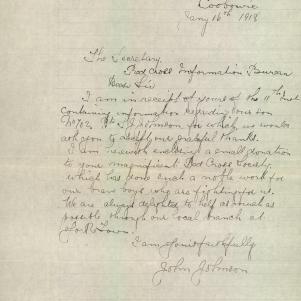 Jany 16th 1918
The Secretary
Red Cross Information Bureau
Dear Sir
I am in receipt of yours of the 11th inst
containing information regarding our son
No 702, Johnson for which we would
ask you to accept our grateful thanks.
I am herewith enclosing a small donation
to your magnificent Red Cross Society,
which has done such a noble work for
our brave boys who are fighting for us.
We are always delighted to help as much as
possible through our local branch at
I am yours faithfully
John Johnson